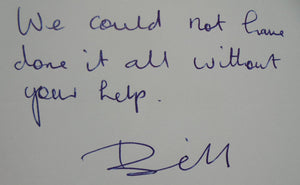 We could not have
done it all without
your help.
Bill